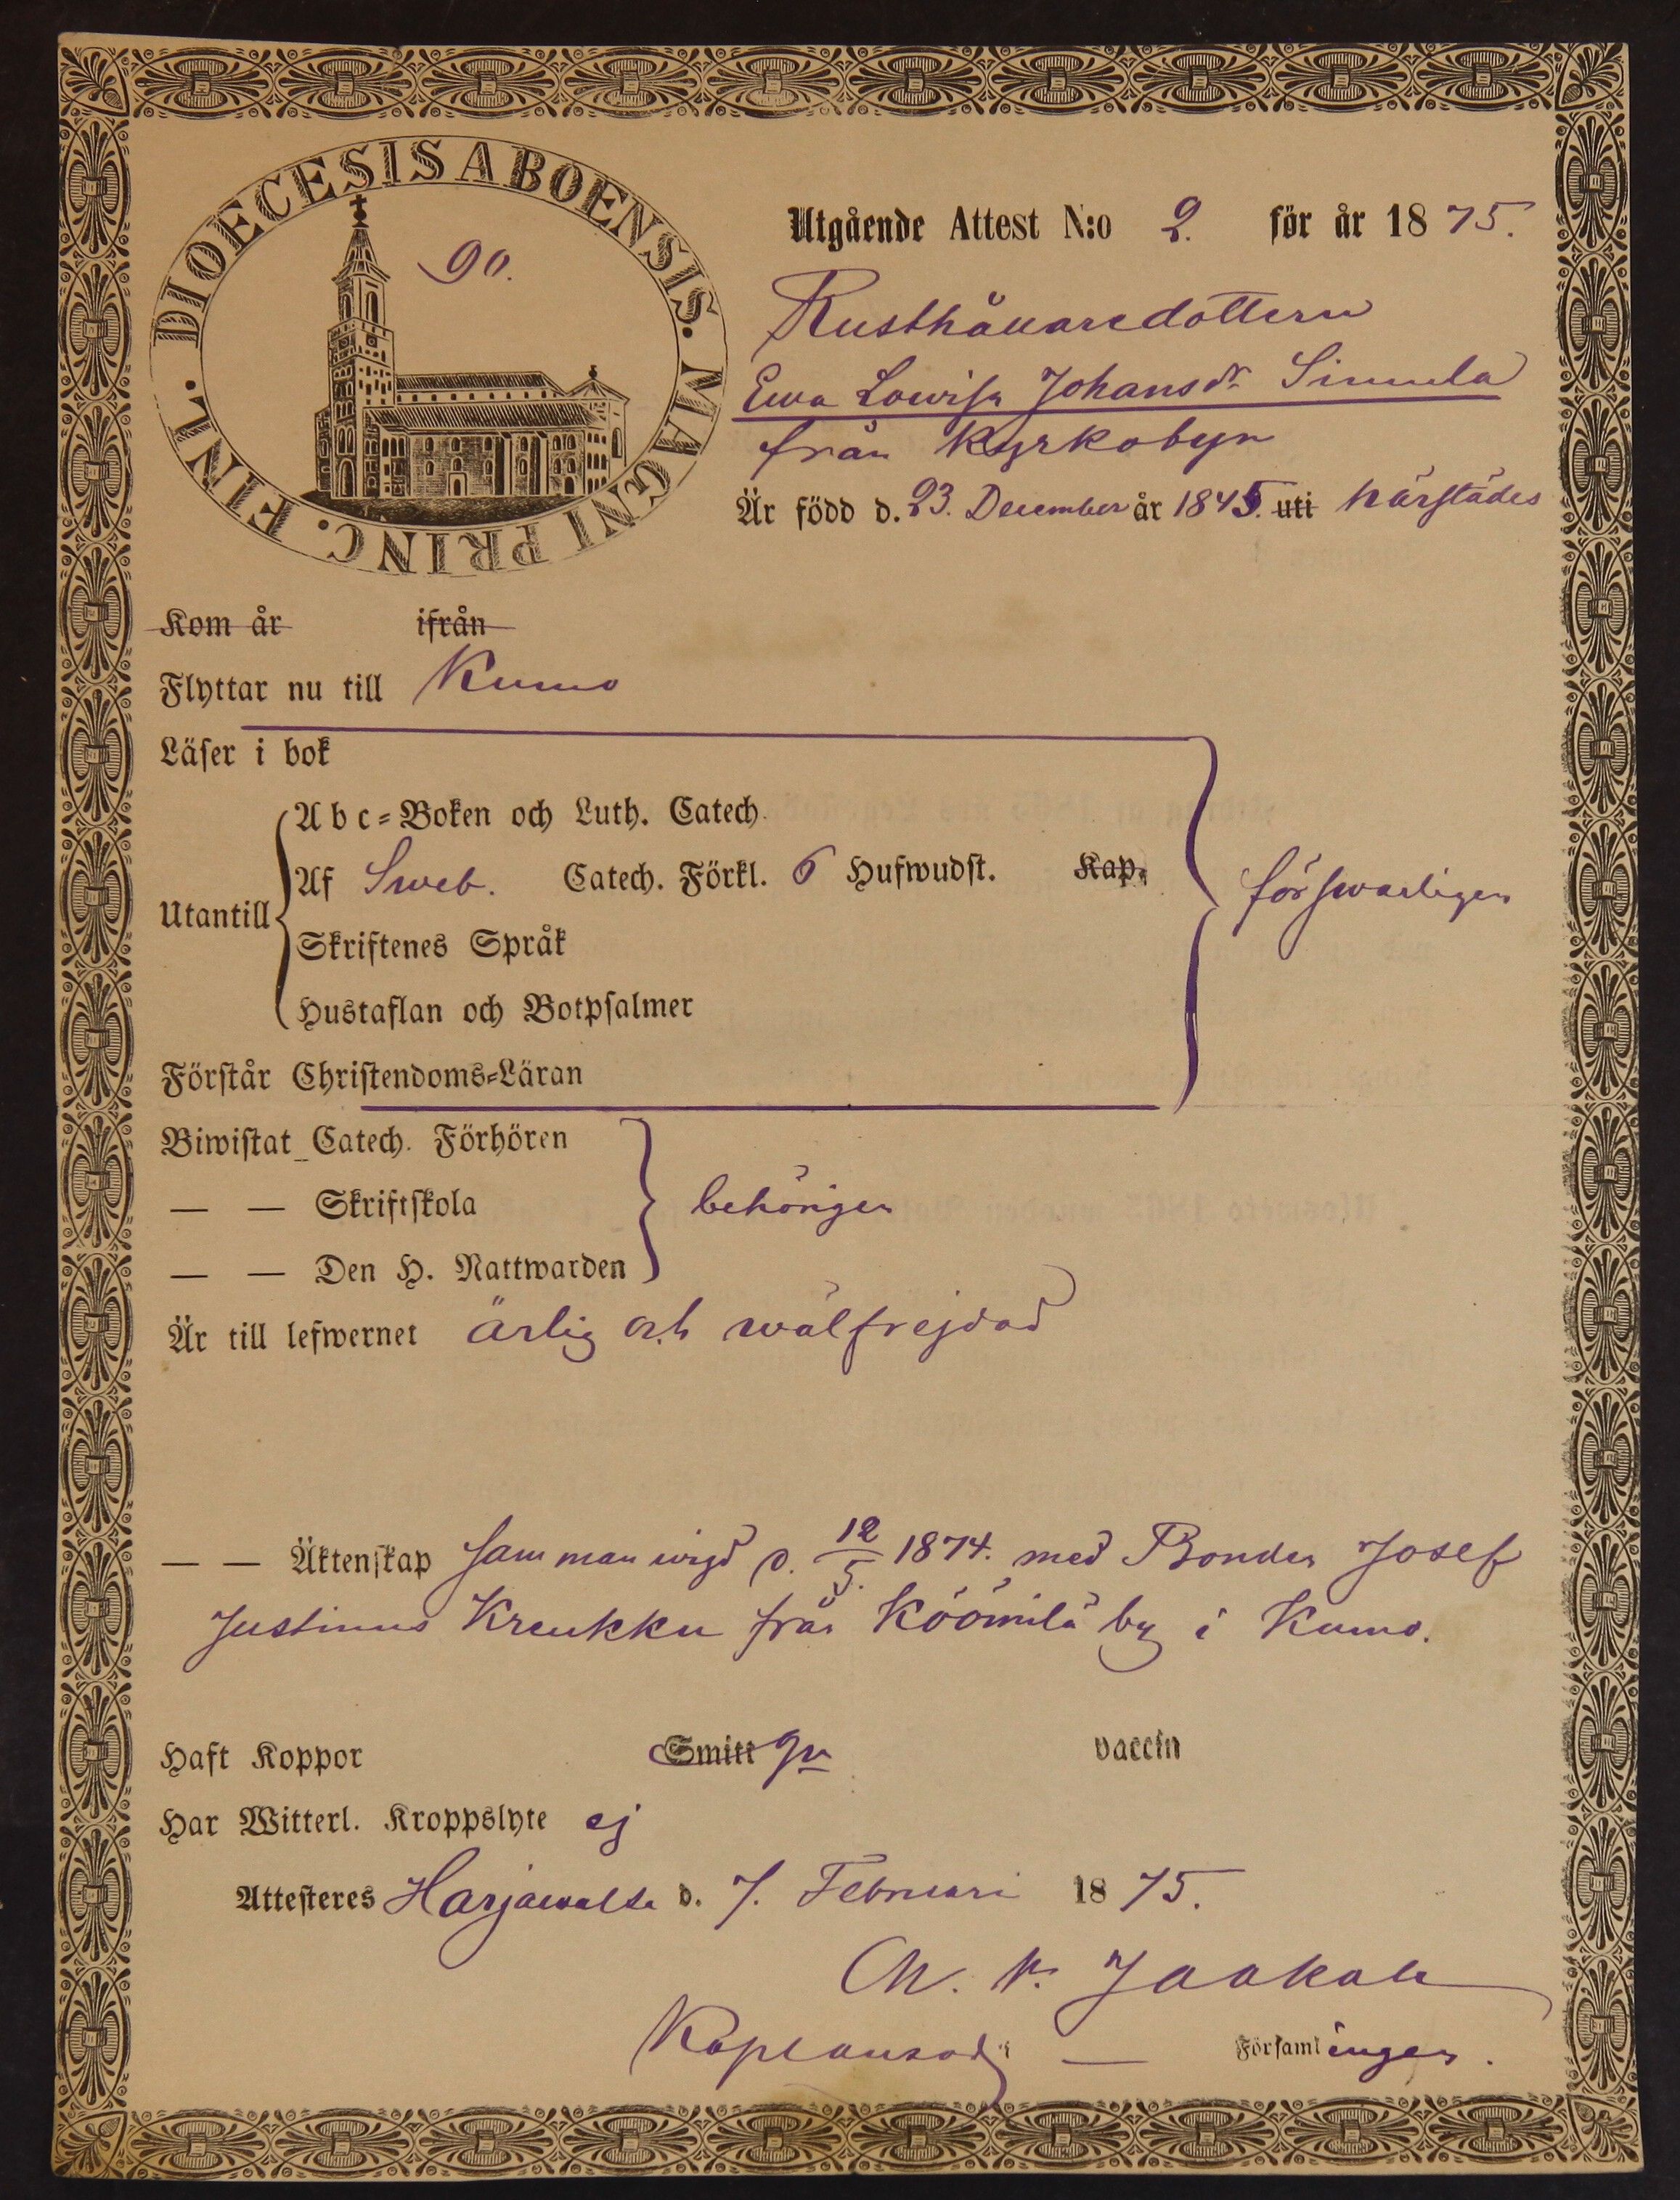 DIOECESIS ABOENSIS. MAGNI PRINC. FINL.
90.
Utgående Attest N:o 2. för år 1875.
Rusthållaredottern
Ewa Lowisa Johansdr Simula
från Kyrkobyn
Är född d. 23. December år 1845. uti härstädes
Kom år ifrån
Flyttar nu till Kumo
Läser i bok
Utantill
Abc=Boken och Luth. Catech.
Af Sweb. Catech. Förkl. 6 Hufwudst. Kap.
Skriftenes Språk
Hustaflan och Botpsalmer
försvarligen
Förstår Christendoms=Läran
Biwistat Catech. Förhören
— — Skriftskola
— — Den H. Nattwarden
behörigen
Är till lefwernet ärlig och wälfrejdad
— — Äktenskap sammanwigd d. 12/5. 1874. med Bonden Josef
Justinus Kreukku från Köömilä by i Kumo.
Haft Koppor Smitt vaccin
Har Witterl. Kroppslyte ej
Attesteres Harjawalta d. 7. Februari 1875.
Jaakola
Församlingen.